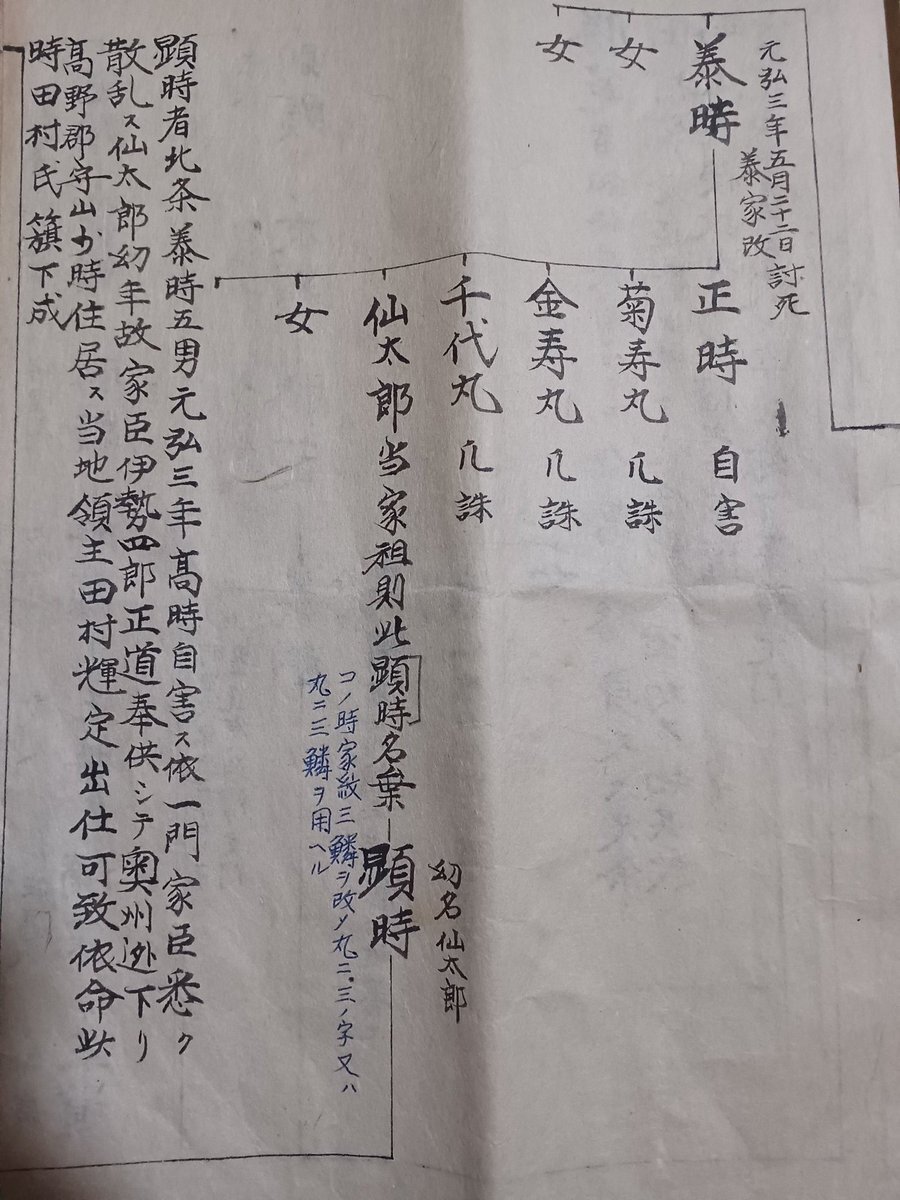 元弘三年五月二十二日討死
泰家改
泰時
女
女
正時 自害
菊寿丸 几誅
金寿丸 几誅
千代丸 几誅
仙太郎当家祖則此顕時名乗
顕時
幼名仙太郎
コノ時家紋三鱗ヲ改メ丸ニ三ノ字又ハ
丸ニ三鱗ヲ用ヘル
女
顕時者北条泰時五男元弘三年高時自害ス依一門家臣悉ク
散乱ス仙太郎幼年故家臣伊勢四郎正道奉供シテ奥州下リ
高野郡守山 時住居ス当地領主田村輝定出仕可致依命此
時田村氏籏下成